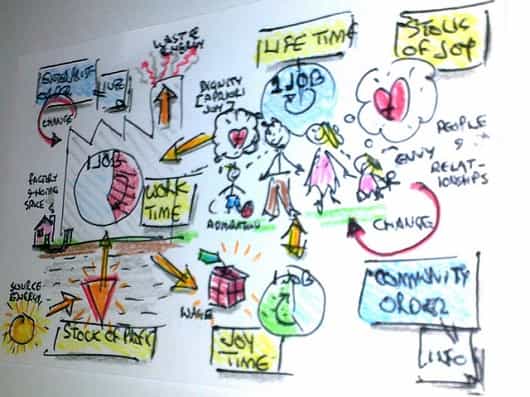 WASTE
ENERGY
LIFE TIME
STOCK
OF JOY
ORDER
LIFE
CHANGE
DIGNITY
JOY
1 JOB
1 JOB
PEOPLE
&
RELAT-
IONSHIPS
ENVY
FACTORY
& LIVING
SPACE
WORK
TIME
ADMIRATION
CHANGE
SOURCE
ENERGY
WAGE
1 JOB
COMMUNITY
ORDER
STOCK OF
JOY
TIME
INFO